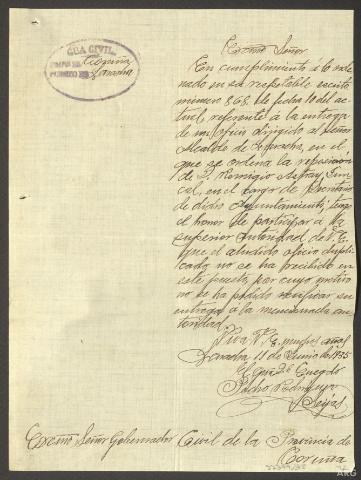 GUA CIVIL
Coruña
PUESTO DE
Laracha
Excmo Señor
En cumplimiento á lo orde
nado en su respetable escrito
número 868 de fecha 10 del ac
tual referente á la entrega
de un oficio dirigido al Señor
Alcalde de, en el
que se ordena la reposición
de D. Remigio
en el cargo de Secretario
de dicho Ayuntamiento; tengo
el honor de participar á la
superior autoridad de V. E.
que el aludido oficio dupli
cado no se ha recibido en
este puesto, por cuyo motivo
no se ha podido verificar su
entrega á la mencionada au
toridad.
Viva V. E. muchos años
Laracha 11 de Junio de 1935
El Gua 2º Encgdo
Seijas
Excmo Señor Gobernador Civil de la Provincia de
Coruña
ARG